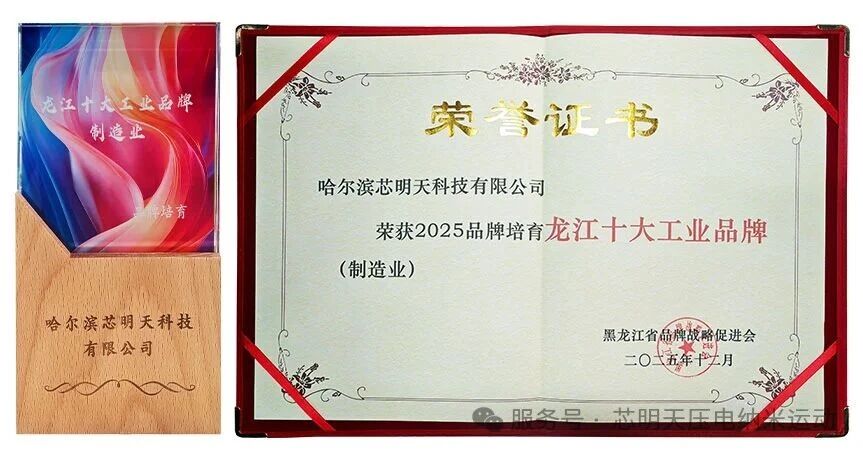 龙江十大工业品牌
制造业
品牌培育
哈尔滨芯明天科技
有限公司
荣誉证书
哈尔滨芯明天科技有限公司
荣获2025品牌培育龙江十大工业品牌
（制造业）
黑龙江省品牌战略促进会
二〇二五年十二月
服务号 · 芯明天压电纳米运动